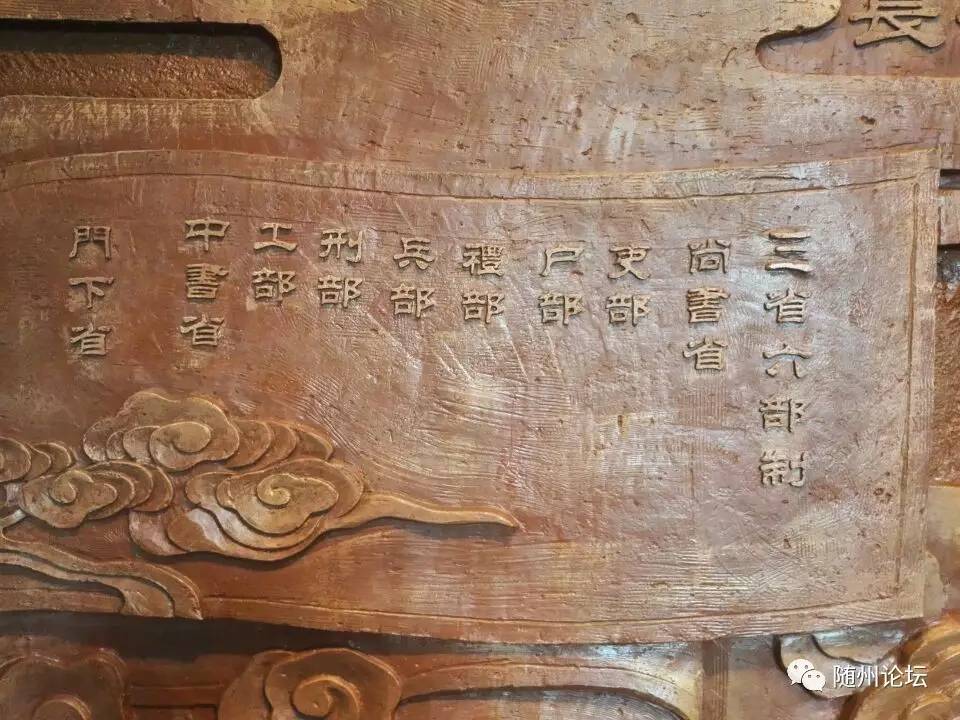 長
三省六部制
尚書省
吏部
尸部
禮部
兵部
刑部
工部
中書省
門下省
随州论坛